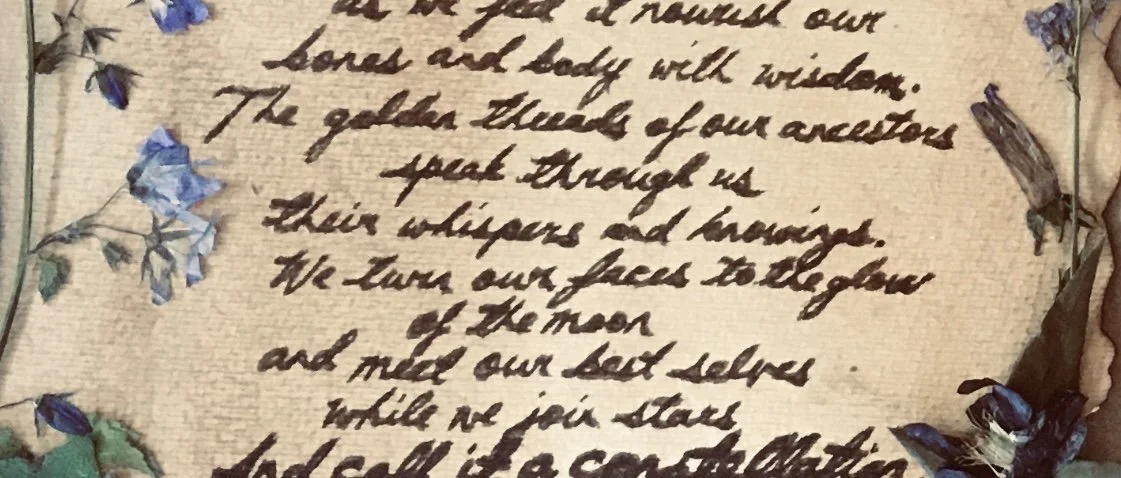 as we feel it nourish our
bones and body with wisdom.
The golden threads of our ancestors
speak through us
their whispers and knowings.
We turn our faces to the glow
of the moon
and meet our best selves
while we join stars
And call it a constellation